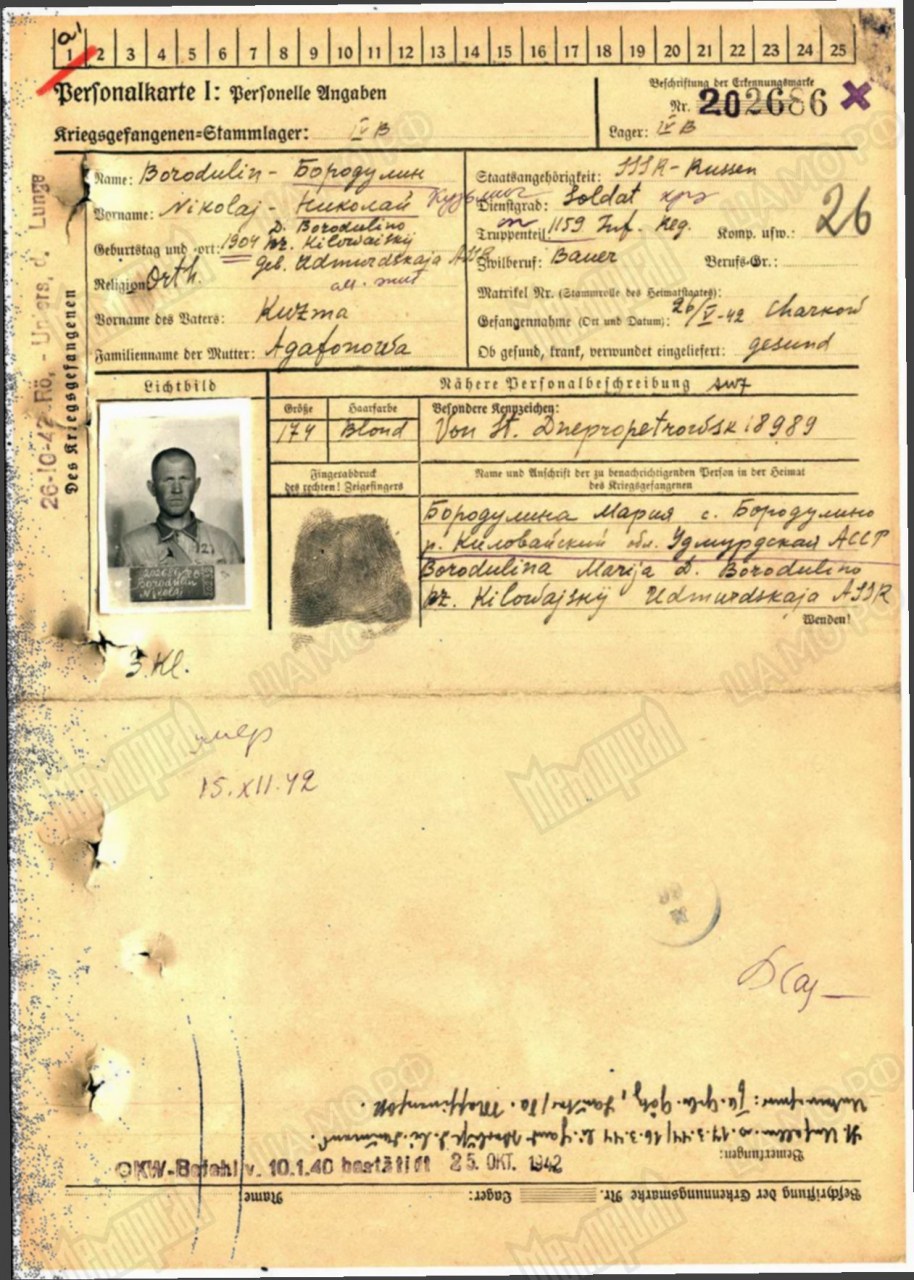 a)
1 2 3 4 5 6 7 8 9 10 11 12 13 14 15 16 17 18 19 20 21 22 23 24 25
Personalkarte I: Personelle Angaben
Kriegsgefangenen=Stammlager: IV B
Beschriftung der Erkennungsmarke
Nr. 202686
Lager: IV B
26-10-42 Rö,- Unters, d. Lunge
Des Kriegsgefangenen
Name: Borodulin - Бородулин
Vorname: Nikolaj - Николай Кузьмич
Geburtstag und =ort: 1904 D. Borodulino
bz. Kilowajskij
geb. Udmurdskaja ASSR
Religion Orth.
Vorname des Vaters: Kuzma
Familienname der Mutter: Agafonowa
Staatsangehörigkeit: SSSR - Russen
Dienstgrad: Soldat кр
Truppenteil 1159 Inf. Reg. Komp. usw.: 26
Zivilberuf: Bauer Berufs=Gr.:
Matrikel Nr. (Stammrolle des Heimatstaates):
Gefangennahme (Ort und Datum): 26/V-42 Charkow
Ob gesund, krank, verwundet eingeliefert: gesund
Lichtbild
Nähere Personalbeschreibung
Größe Haarfarbe Besondere Kennzeichen:
174 Blond Von St. Dnepropetrowsk 18989
Fingerabdruck
des rechten! Zeigefingers
Name und Anschrift der zu benachrichtigenden Person in der Heimat
des Kriegsgefangenen
Бородулина Мария с. Бородулино
р. Киловайский обл. Удмурдская АССР
Borodulina Marija D. Borodulino
bz. Kilowajskij Udmurdskaja ASSR
Wenden!
Borodulin
Nikolaj
3. Kl.
умер
15.XII.42
Bemerkungen:
OKW-Befehl v. 10.1.40 bestätigt 25. OKT. 1942
Beschriftung der Erkennungsmarke Nr. Lager: Name:
Мемориал
ЦАМО РФ